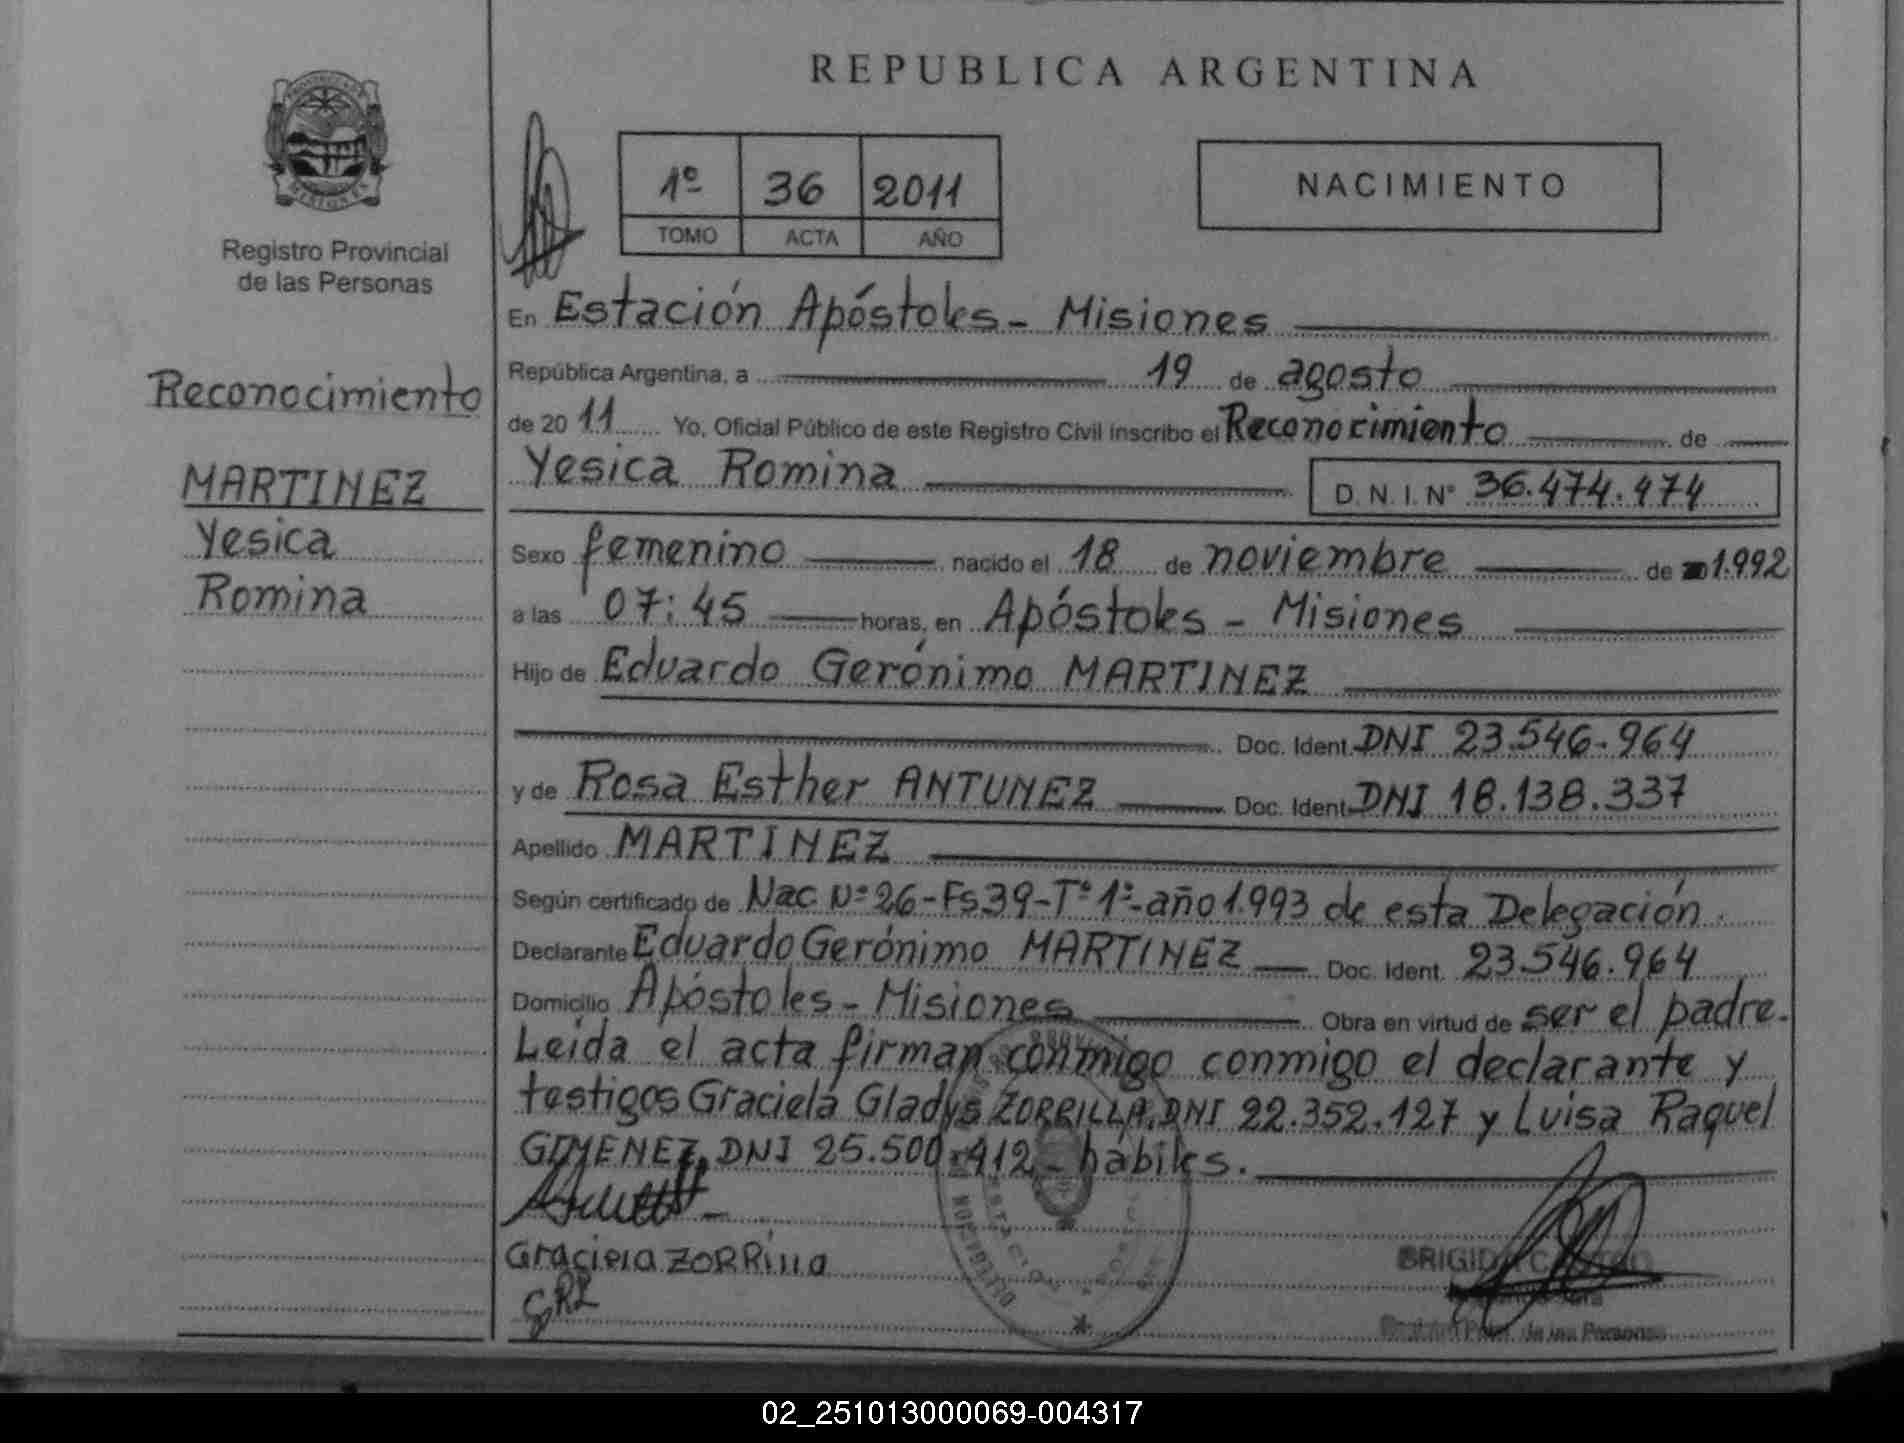 REPUBLICA ARGENTINA
MISIONES
Registro Provincial
de las Personas
1º 36 2011
TOMO ACTA AÑO
NACIMIENTO
Reconocimiento
MARTINEZ
Yesica
Romina
En Estación Apóstoles - Misiones
República Argentina, a 19 de agosto
de 2011 Yo, Oficial Público de este Registro Civil inscribo el Reconocimiento de
Yesica Romina D.N.I. Nº 36.474.474
Sexo femenino nacido el 18 de noviembre de 1.992
a las 07:45 horas, en Apóstoles - Misiones
Hijo de Eduardo Gerónimo MARTINEZ
Doc. Ident. DNI 23.546.964
y de Rosa Esther ANTUNEZ Doc. Ident. DNI 18.138.337
Apellido MARTINEZ
Según certificado de Nac Nº 26-Fs 39-Tº 1º-año 1.993 de esta Delegación.
Declarante Eduardo Gerónimo MARTINEZ Doc. Ident. 23.546.964
Domicilio Apóstoles - Misiones Obra en virtud de ser el padre.
Leida el acta firman conmigo conmigo el declarante y
testigos Graciela Gladys ZORRILLA, DNI 22.352.127 y Luisa Raquel
GIMENEZ, DNI 25.500.412 - hábiles.
Graciela ZORRilla
GRL
de las Personas
02_251013000069-004317